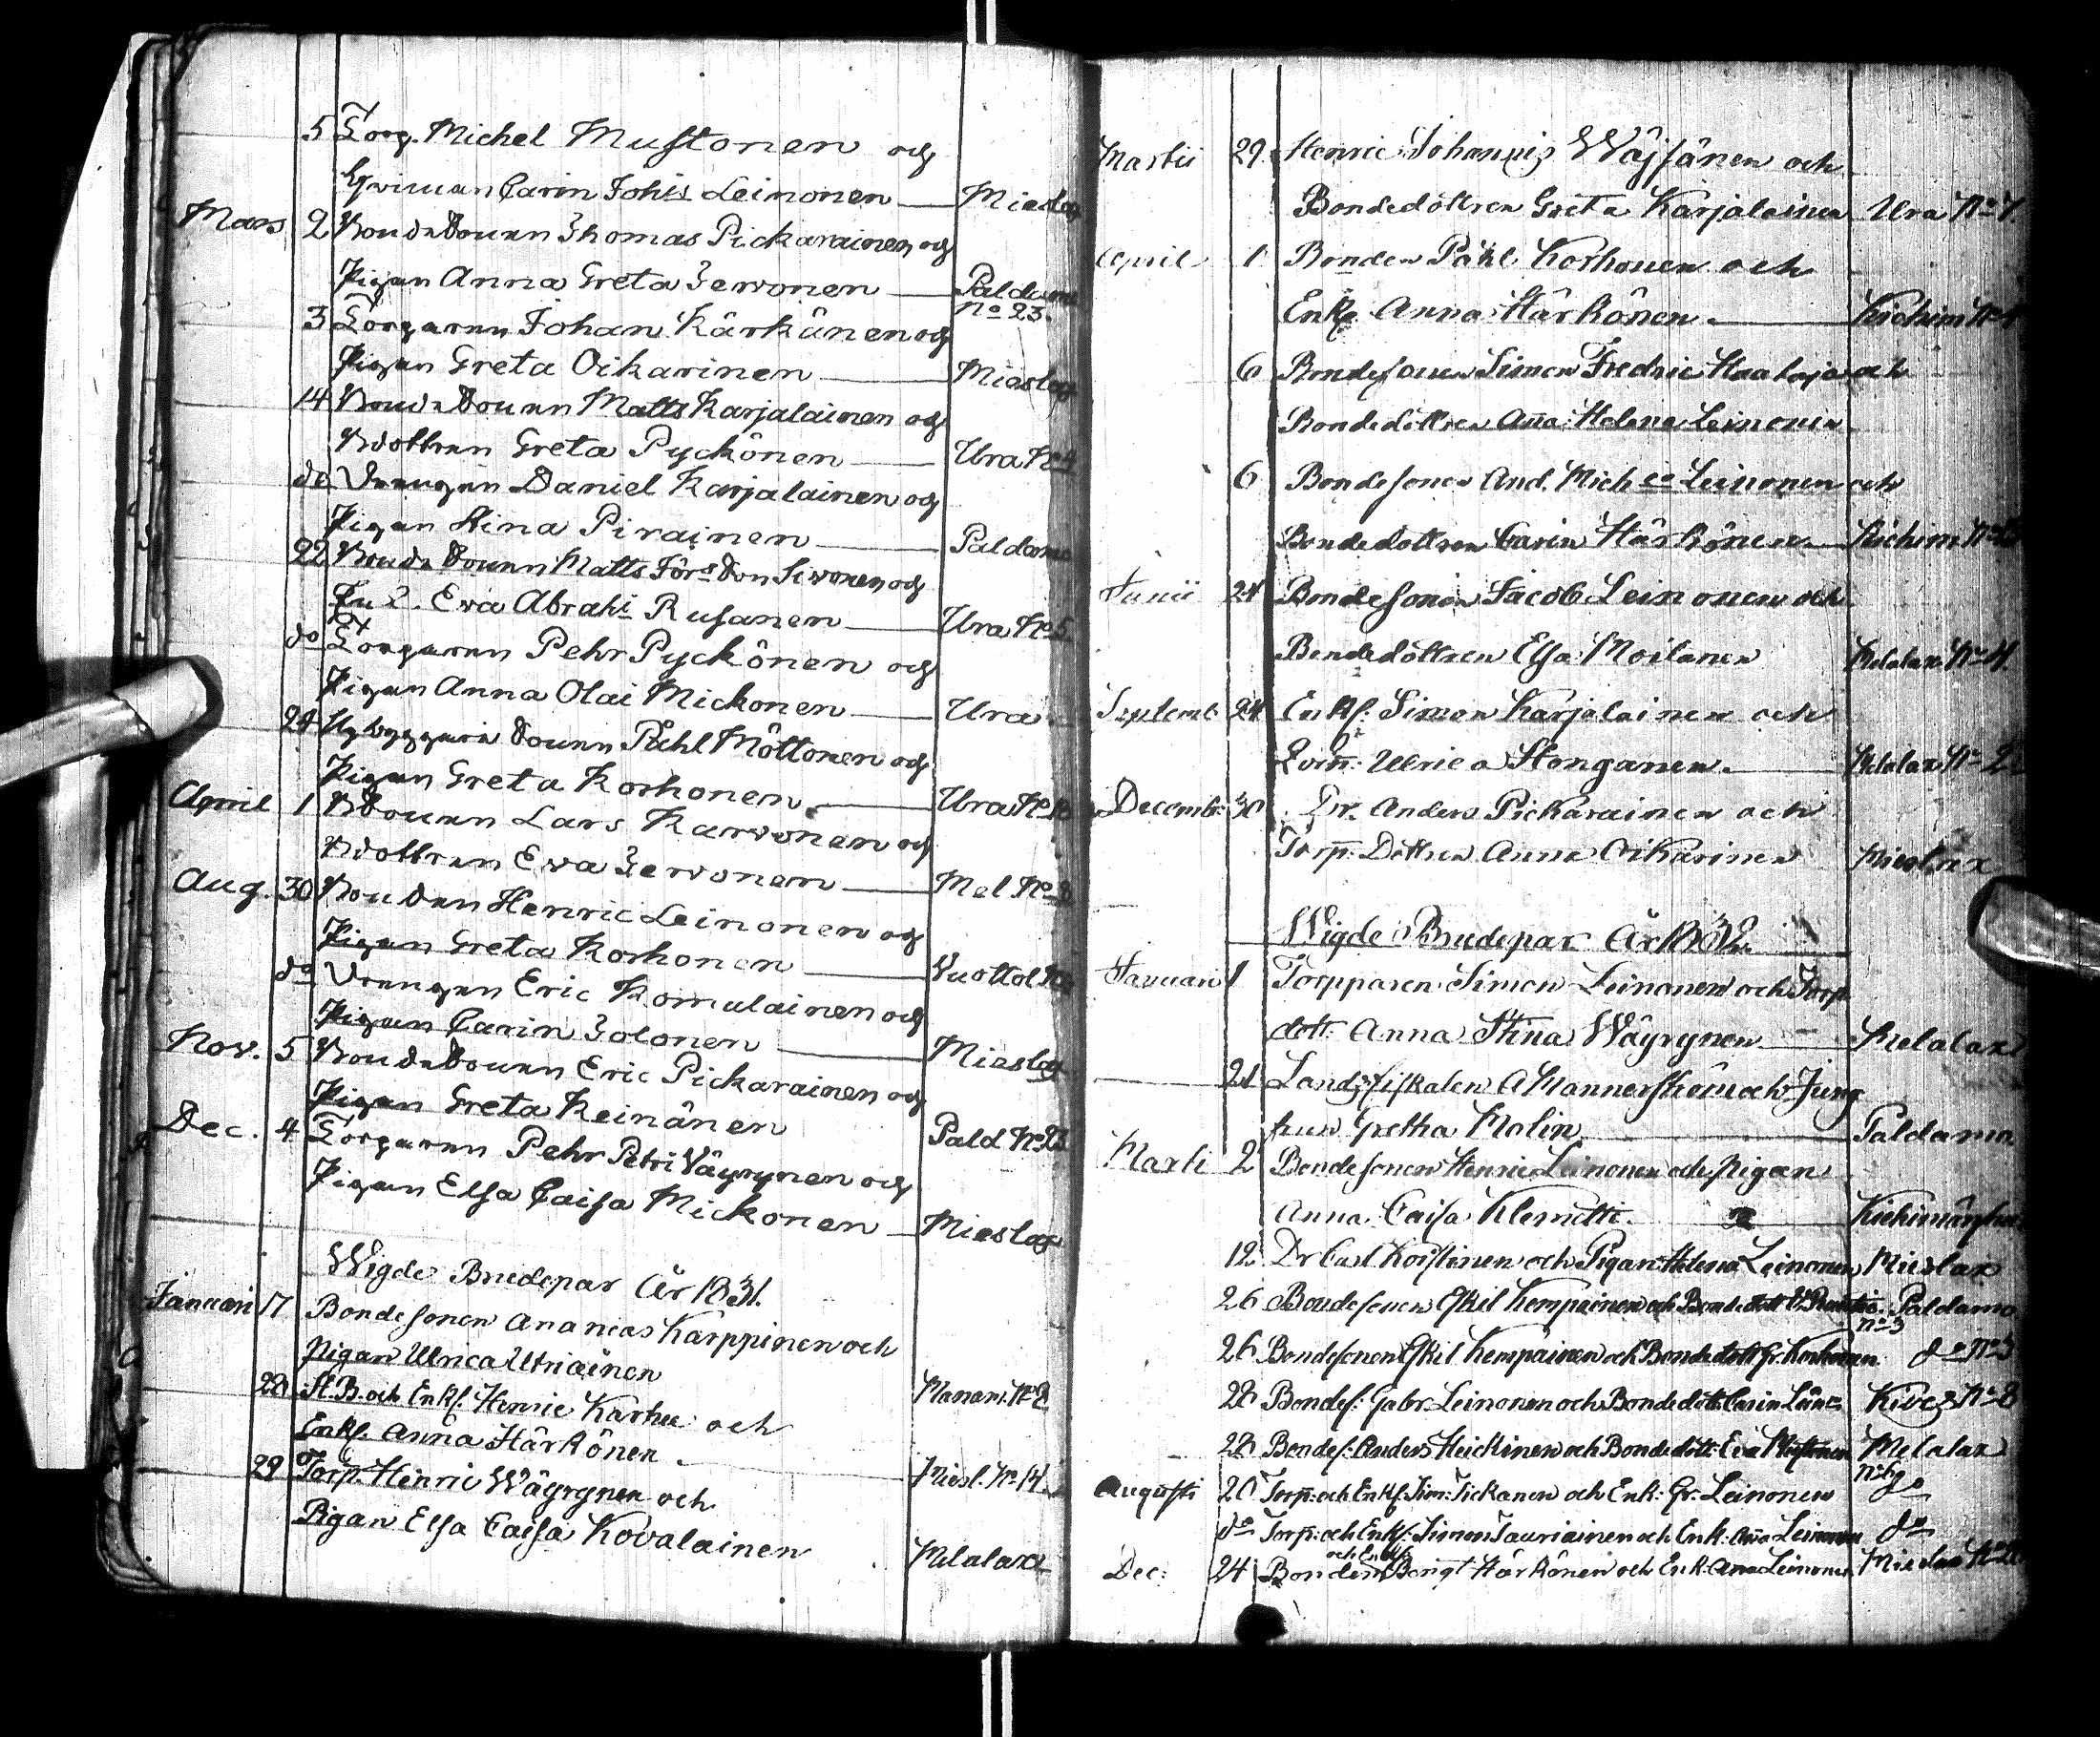 5 Torp. Michel Mustonen och
Carin Johis Leinonen — Mieslax
Mars 2 Bondesonen Thomas Pickarainen och
Pigan Anna Greta Jewonen — Paldamo No 23.
3 Torparen Johan Kärkänen och
Pigan Greta Oikarinen — Mieslax
14 Bondesonen Matts Karjalainen och
Bdottren Greta Pyckönen — Ura No 4
do Drengen Daniel Karjalainen och
Pigan Stina Pirainen — Paldamo
22 Bondesonen Matts Jörs Son Sivonen och
Eva Abrahs Rusanen — Ura No 5.
do Torparen Pehr Pyckönen och
Pigan Anna Olai Mickonen — Ura
24 Nybyggare Sonen Påhl Möttönen och
Pigan Greta Korhonen — Ura No
April 1 BSonen Lars Karvonen och
Bdottren Eva Jewonen — Mel No 8
Aug. 30 Bonden Henric Leinonen och
Pigan Greta Korhonen — Vuottol No
do Drengen Eric Komulainen och
Pigan Carin Jolonen — Mieslax
Nov. 5 Bondesonen Eric Pickarainen och
Pigan Greta Keinänen Pald No 23
Dec. 4 Torparen Pehr Petri Väyrynen och
Pigan Elsa Caisa Mickonen — Mieslax
Wigde Brudepar År 1831.
Januari 17 Bondesonen Ananias Kärppinen och
Pigan Ulrica Utriainen Manam. No 2
28 St. B. och Enkf. Henric Karhu och
Enkf. Anna Härkönen — Miesl. No 14.
29 Torp. Henric Wäyrynen och
Pigan Elsa Caisa Kovalainen Melalax
Martii 29 Henric Johannis Wäisänen och
Bondedottren Greta Karjalainen Ura No 7
April 1 Bonden Påhl Korhonen och
Enka Anna Härkönen — Kiehim No
6 Bondesonen Simon Fredric Haataja och
Bondedottren Anna Helena Leinonen
6 Bondesonen And. Mich Leinonen och
Bondedottren Carin Härkönen — Kiehim No
Junii 24 Bondesonen Jacob Leinonen och
Bondedottren Elsa Moilanen Melalax No 4.
Septemb. 24 Enkf. Simon Karjalainen och
Ulrica Honganen — Melalax No 2
Decemb. 30 Dr. Anders Pickarainen och
Torp. Dottren Anna Oikarinen Mieslax
Wigde Brudepar År 1832.
Januari 1 Torpparen Simon Leinonen och Torp.
dott. Anna Stina Wäyrynen — Melalax
21 Landsfiskalen A Mannerström och Jung
frun Gretha Molin — Paldamo
Marti 2 Bondesonen Henric Leinonen och Pigan
Anna Caisa Klemetti — Kiehimänsuu
12 Dr Carl Korstinen och Pigan Helena Leinonen Mieslax
26 Bondesonen Eskil Kempainen och Bondedott Paldamo No 3
26 Bondesonen Eskil Kempainen och Bondedott Gr. Korhonen do No 3
28 Bondes. Gabr. Leinonen och Bondedott. Carin No 8
28 Bondes. Anders Heickinen och Bondedott. Eva Mustonen Melalax No 6
Augusti 20 Torp. och Enkf. Sim: Tickanen och Enk: Gr. Leinonen do
do Torp. och Enkf. Simon Tauriainen och Enk. Anna Leinonen do
Dec: 24 Bonden och Enkf. Bengt Härkönen och Enk. Anna Leinonen Mieslax No